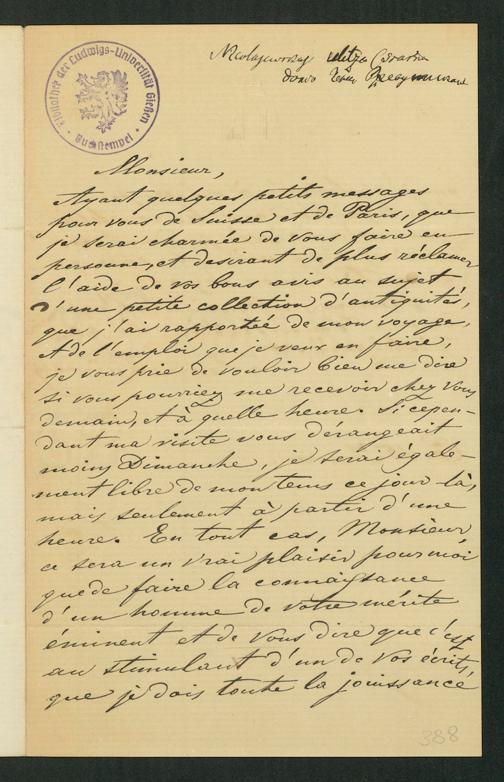 Bibliothek der Ludwigs-Universität Gießen
Buchstempel
Nicolajewskaj ulitza
domo
Monsieur,
Ayant quelques petits messages
pour vous de Suisse et de Paris, que
je serai charmée de vous faire en
personne, et desirant de plus réclamer
l'aide de vos bons avis au sujet
d'une petite collection d'antiquités,
que j'ai rapportée de mon voyage,
et de l'emploi que je veux en faire,
je vous prie de vouloir bien me dire
si vous pourriez me recevoir chez vous
demain, et à quelle heure. Si cepen-
dant ma visite vous dérangeait
moins Dimanche, je serai égale-
ment libre de mon tems ce jour-là,
mais seulement à partir d'une
heure. En tout cas, Monsieur
ce sera un vrai plaisir pour moi
que de faire la connaissance
d'un homme de votre mérite
éminent et de vous dire que c'est
au stimulant d'un de vos écrits,
que je dois toute la jouissance
388